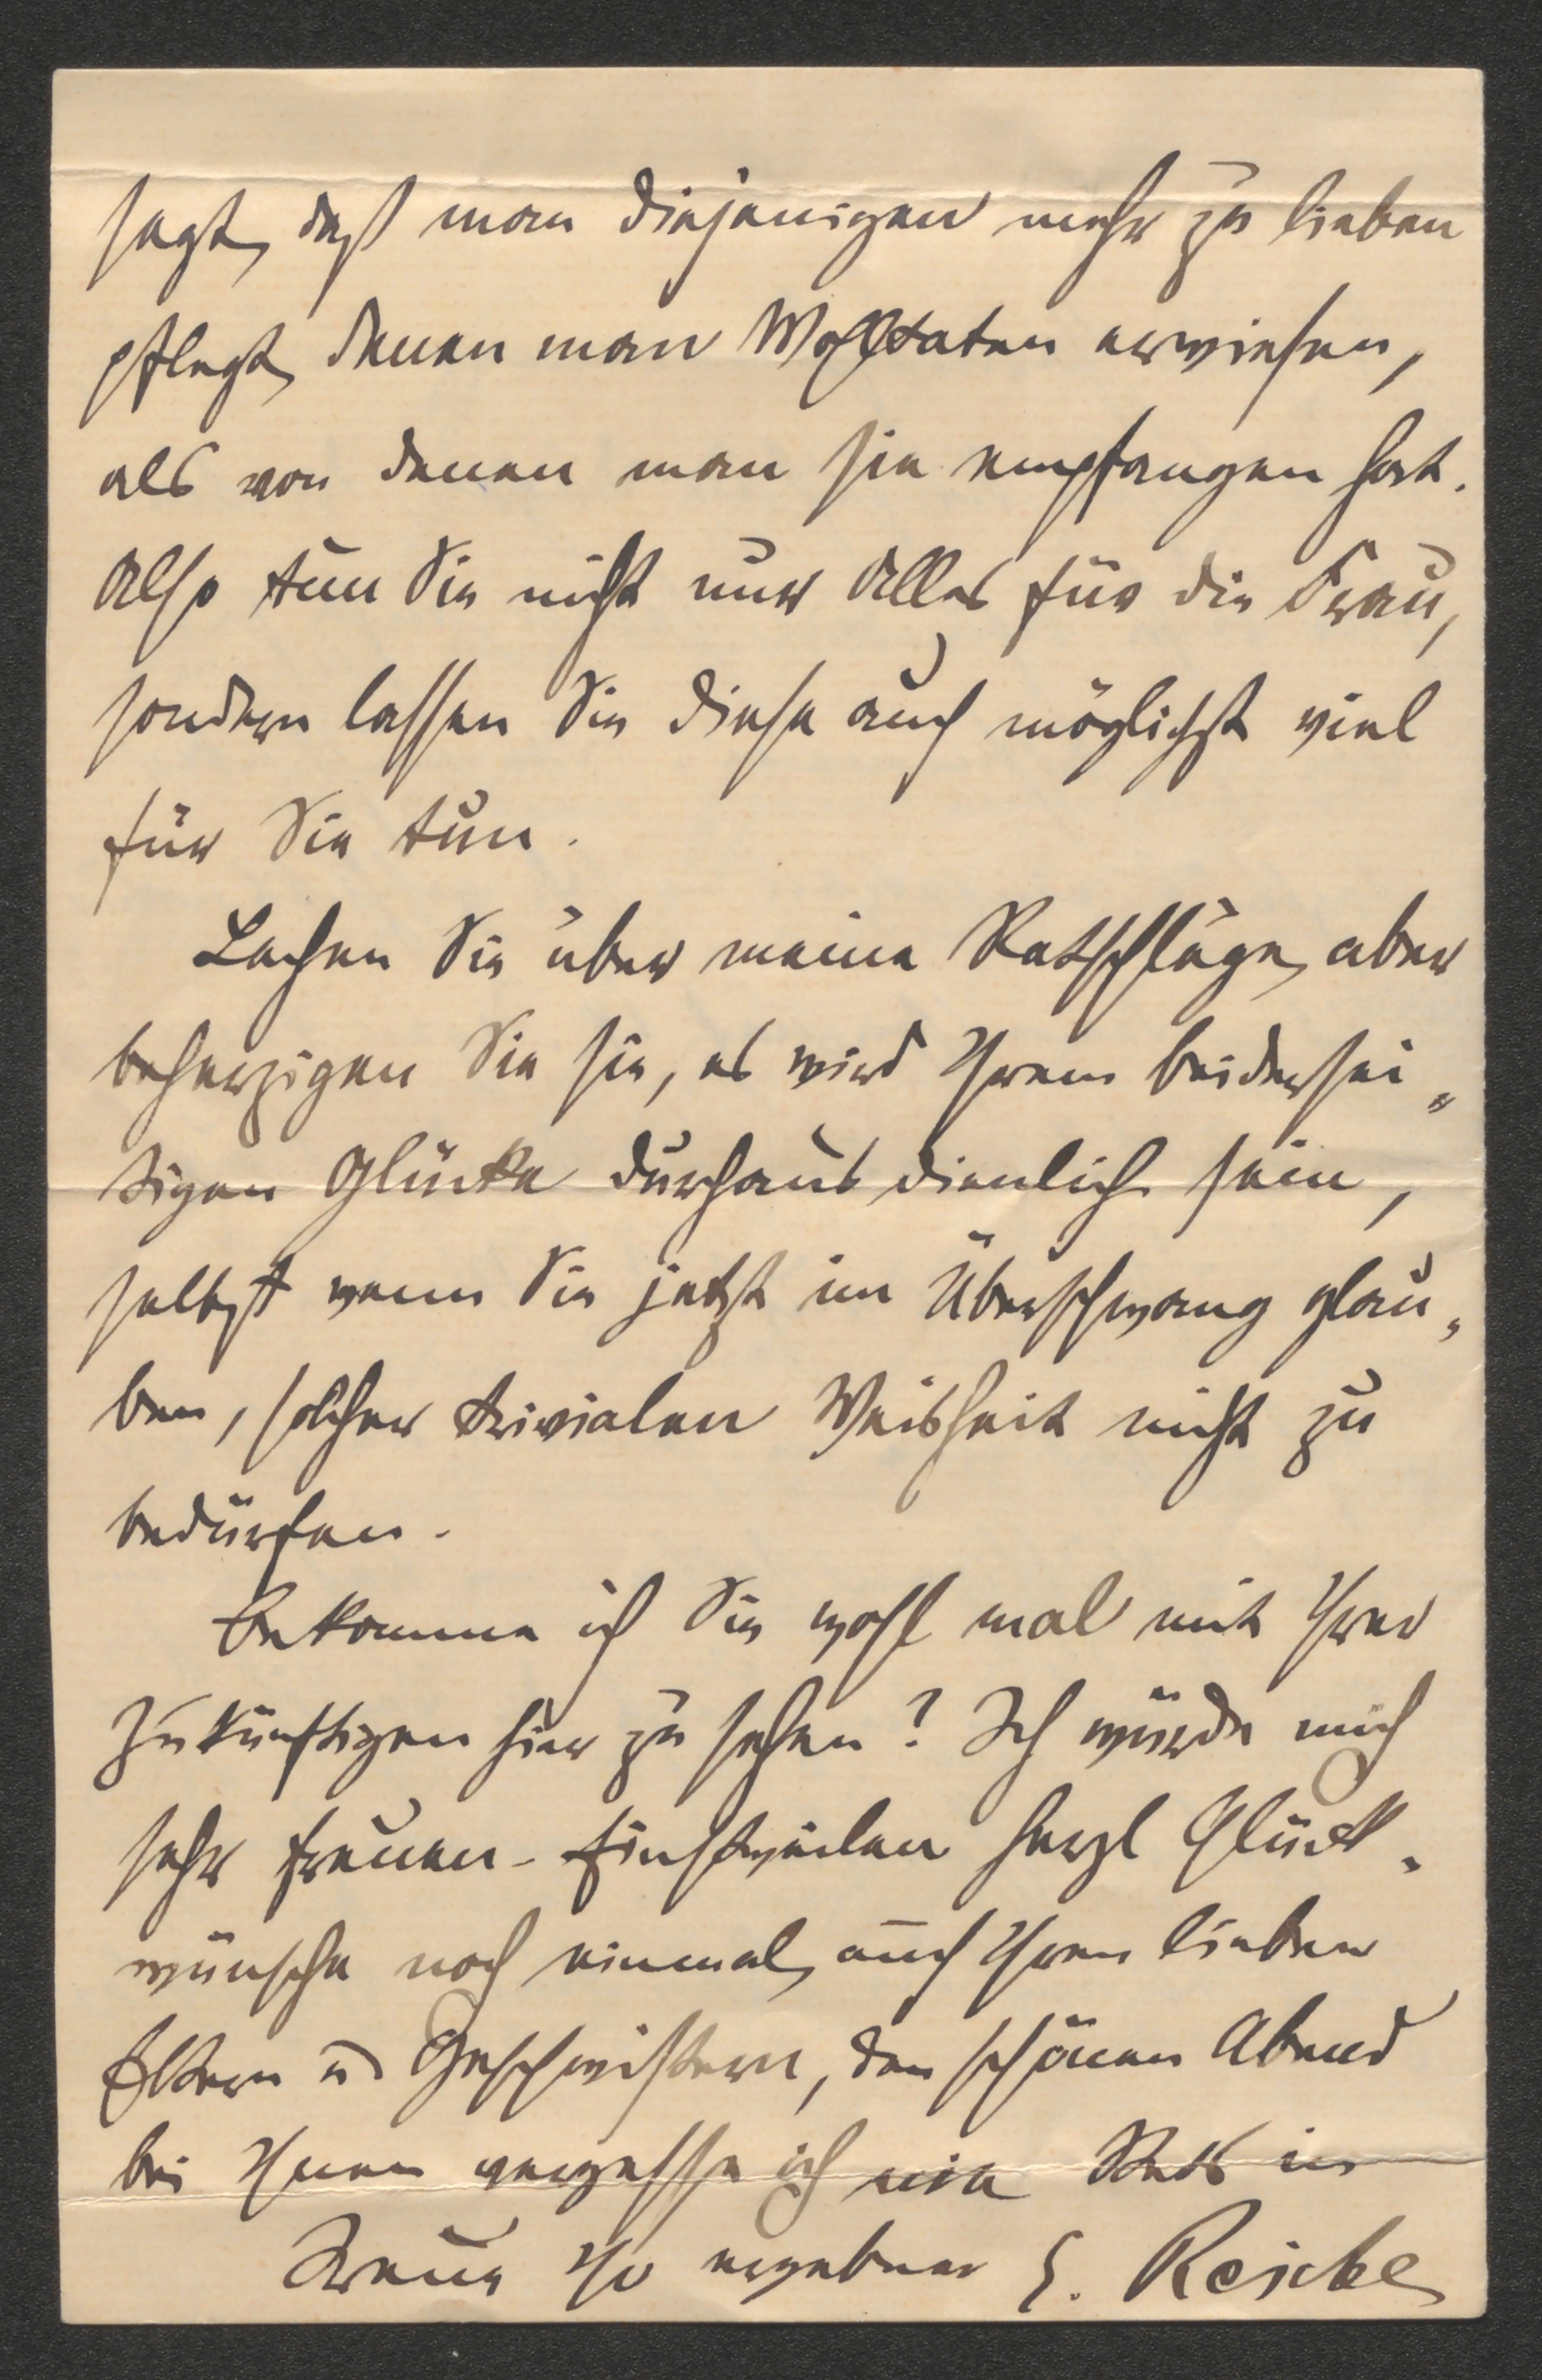 sagt, daß man diejenigen mehr zu lieben
pflegt, denen man Wohltaten erwiesen,
als von denen man sie empfangen hat.
Also tun Sie nicht nur Alles für die Frau,
sondern lassen Sie diese auch möglichst viel
für Sie tun.
Lachen Sie über meine Ratschläge, aber
beherzigen Sie sie, es wird Ihrem beidersei„
tigen Glücke durchaus dienlich sein,
selbst wenn Sie jetzt im Überschwang glau„
ben, solcher trivialen Weisheit nicht zu
bedürfen.
Bekomme ich Sie wohl mal mit Ihrer
Zukünftigen hier zu sehen? Ich würde mich
sehr freuen. Einstweilen herzl Glück„
wünsche noch einmal, auch Ihren lieben
Eltern u Geschwistern, den schönen Abend
bei Ihnen vergesse ich nie Stets in
Treue Ihr ergebener E. Reicke